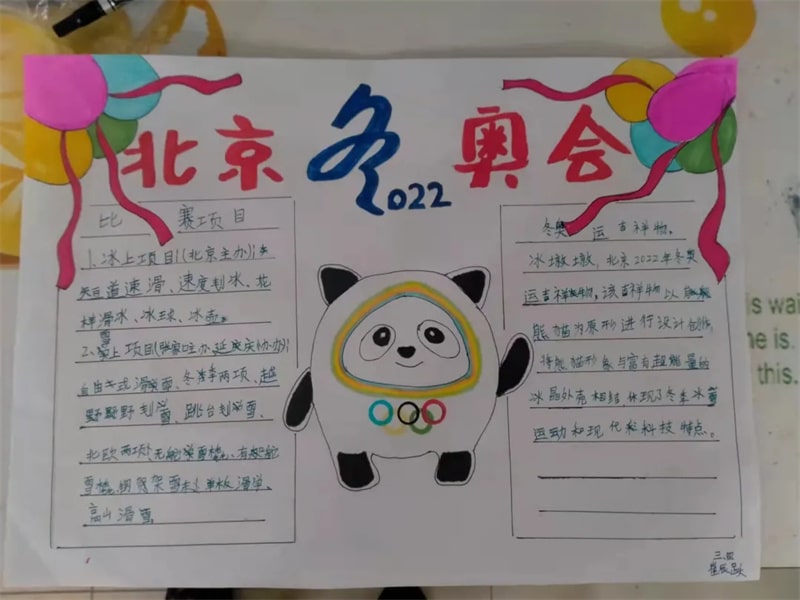 北京冬奥会
2022
比 赛项目
1、冰上项目(北京主办):
道速滑、速度划冰、花
样滑冰、冰球、冰壶。
2、雪上项目(张家口主办,延庆协办):
自由式滑雪、冬季两项、越
野野划雪、跳台划雪、
北欧两项、无舵雪橇、有舵
雪橇、钢架雪车、单板滑雪、
高山滑雪
冬奥 运 吉祥物。
冰墩墩,北京2022年冬奥
运吉祥物。该吉祥物以
熊猫为原形进行设计创作,
将熊猫形象与富有超能量的
冰晶外壳相结,体现了冬季冰雪
运动和现代科技特点。
his wai
ne is.
this.